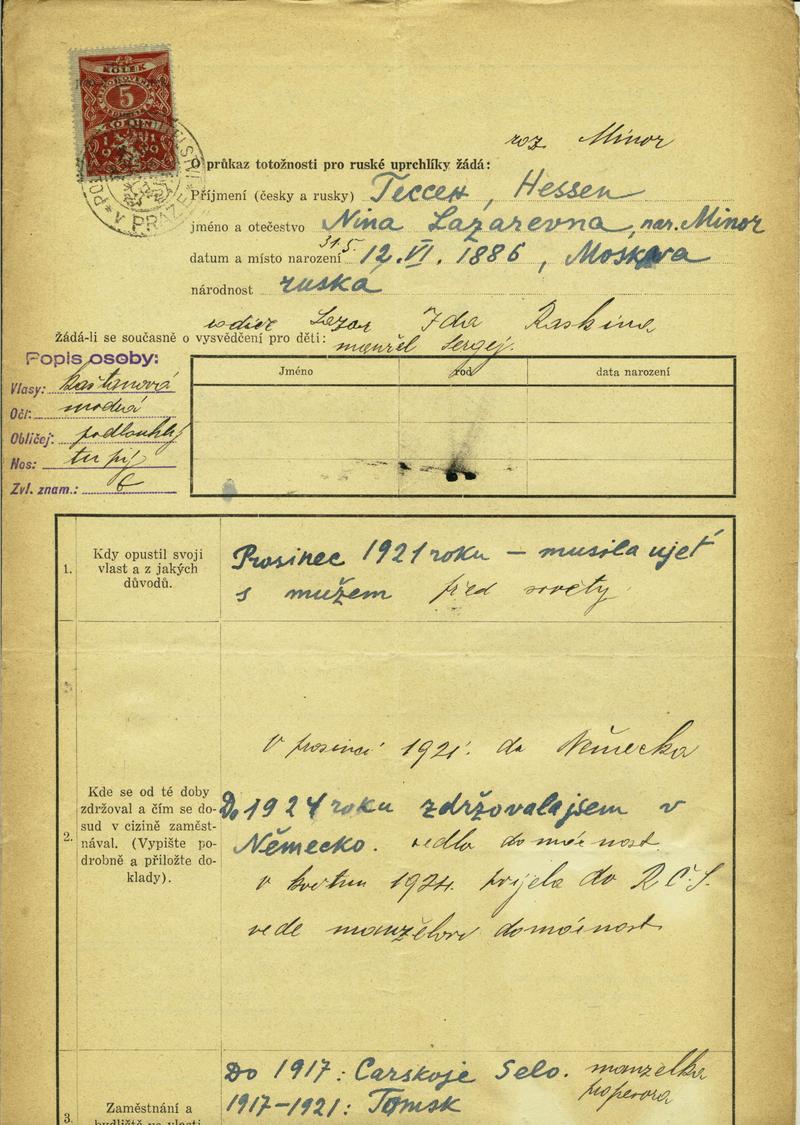 KOLEK
5
V PRAZE
roz Minor
O průkaz totožnosti pro ruské uprchlíky žádá:
Příjmení (česky a rusky) Гессен, Hessen
jméno a otečestvo Nina Lazarevna, nar. Minor
31.5.
datum a místo narození 12. VI. 1886, Moskva
národnost ruská
rodiče Lazar Ida Raskina
Žádá-li se současně o vysvědčení pro děti: manžel Sergej.
Popis osoby:
Vlasy: kaštanová
Oči: modrá
Obličej: podlouhlý
Nos: tupý
Zvl. znam.:
Jméno rod data narození
1. Kdy opustil svoji vlast a z jakých důvodů.
Prosinec 1921 roku – musila ujeť
s mužem před sověty
2. Kde se od té doby zdržoval a čím se do-
sud v cizině zaměst-
nával. (Vypište po-
drobně a přiložte do-
klady).
V prosinci 1921. do Německa
Do 1924 roku zdržovala jsem v
Německo. vedla domácnost
v květnu 1924 přijela do R.Č.S.
vede manželovi domácnost
3. Zaměstnání a
bydliště ve vlasti
Do 1917: Carskoje Selo. manželka
profesora
1917-1921: Tomsk